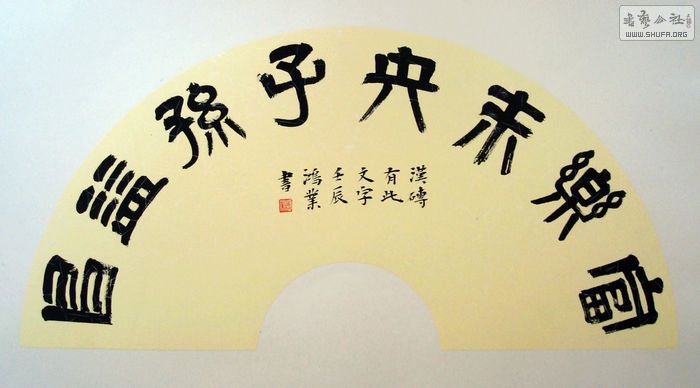 富樂未央子孫益昌
漢磚
有此
文字
壬辰
鴻業
書
書藝公社
WWW.SHUFA.ORG